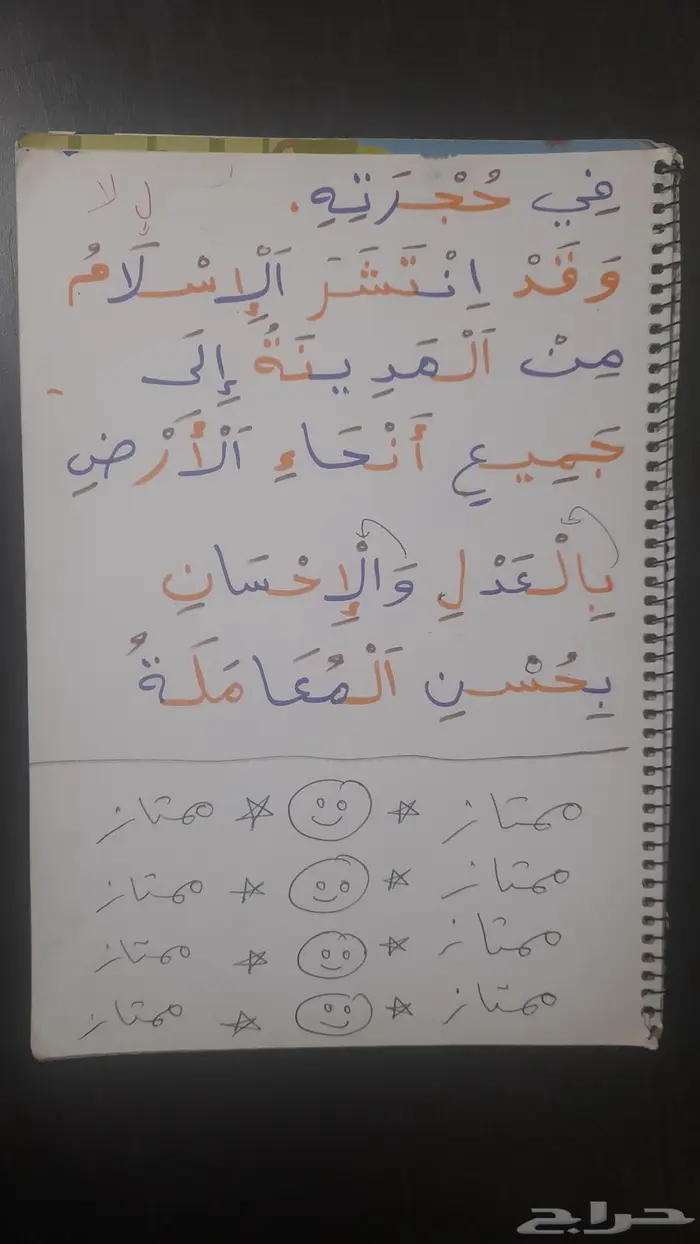 فِي حُجْرَتِهِ. لِ لا
وَقَدْ اِنْتَشَرَ اَلْإِسْلَامُ
مِنْ اَلْمَدِينَةُ إِلَى
جَمِيعِ أَنْحَاءِ اَلْأَرْضِ
بِالْعَدْلِ وَالْإِحْسَانِ
بِحُسْنِ اَلْمُعَامَلَةُ
ممتاز ممتاز
ممتاز ممتاز
ممتاز ممتاز
ممتاز ممتاز
حراج